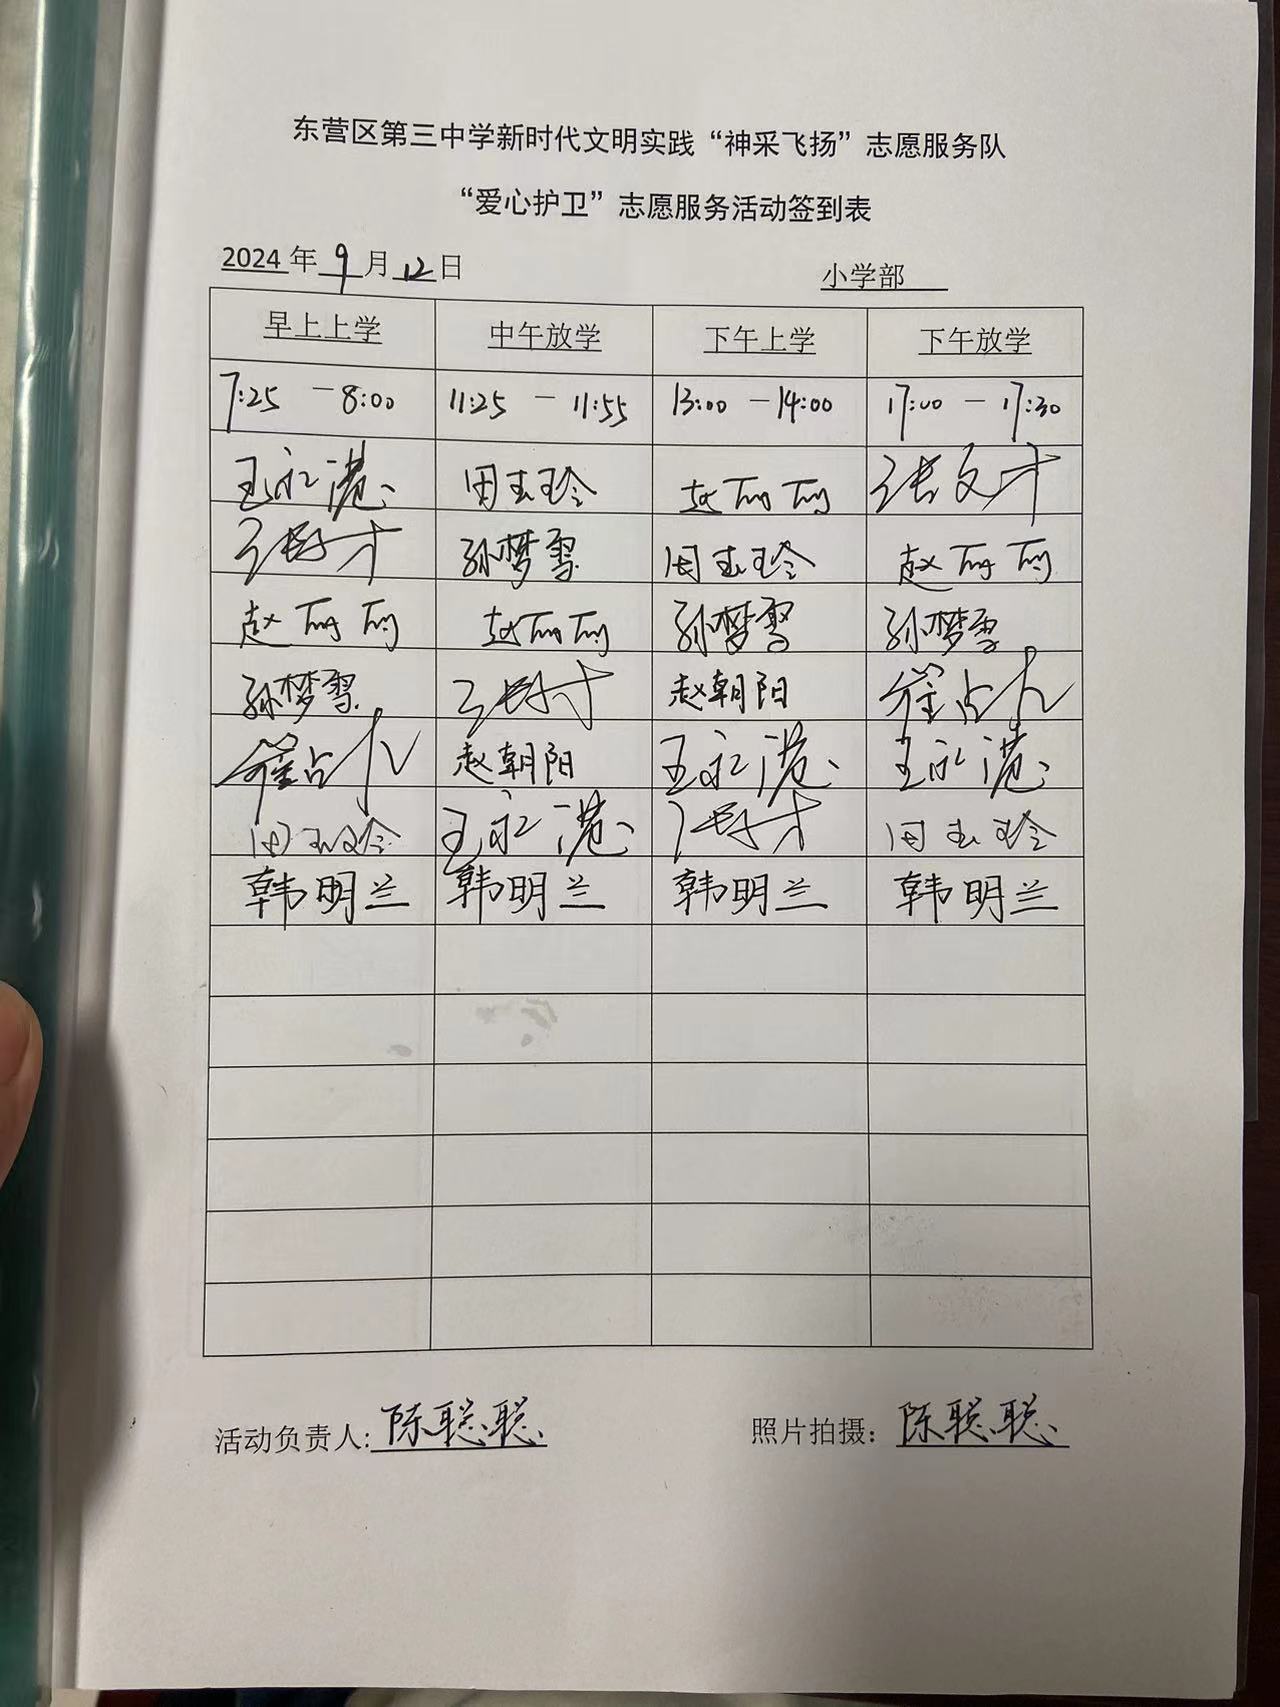 东营区第三中学新时代文明实践“神采飞扬”志愿服务队
“爱心护卫”志愿服务活动签到表
2024年 9 月 12 日 小学部
早上上学 中午放学 下午上学 下午放学
7:25 — 8:00 11:25 — 11:55 13:00 — 14:00 17:00 — 17:30
王永港 田玉玲 赵丽丽 张文才
张文才 孙梦雪 田玉玲 赵丽丽
赵丽丽 赵丽丽 孙梦雪 孙梦雪
孙梦雪 张文才 赵朝阳 崔占
崔占 赵朝阳 王永港 王永港
田玉玲 王永港 张文才 田玉玲
韩明兰 韩明兰 韩明兰 韩明兰
活动负责人: 陈聪聪 照片拍摄： 陈聪聪